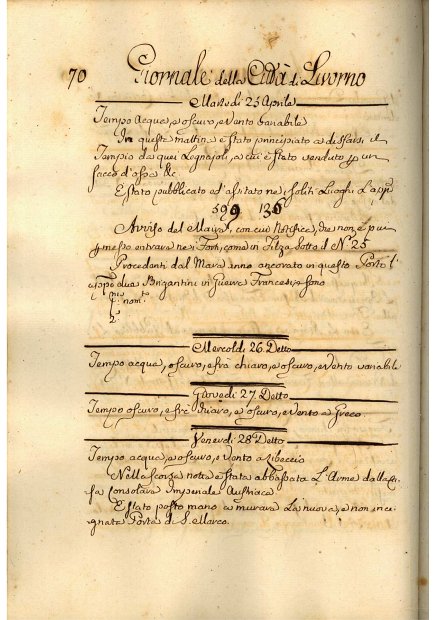 70 Giornale della Città di Livorno
Martedi 25 Aprile
Tempo Acqua, e oscuro, e Vento variabile
In questa mattina è stato principiato a disfarsi il
Tempio da quei Legnajoli, a cui è stato venduto p un
sacco d'ossa &c
E stato pubblicato ed afisato ne soliti Luoghi
599 136
Avviso del Maire, con cui Notifica, che non è più
permesso entrare nei Forti, come in Filza sotto il N.° 25
Procedenti dal Mare anno ancorato in questo Porto
due Brigantini in Guerra Francesi, e sono
p.mo nom.to
2.°
Mercoldi 26 Detto
Tempo acqua, oscuro, e frà chiaro, e oscuro, e Vento variabile
Giovedi 27 Detto
Tempo oscuro, e frà chiaro, e oscuro, e Vento a Greco
Venerdi 28 Detto
Tempo acqua, e oscuro, e Vento a Libeccio
Nella scorsa notte è stata abbassata L'Arme dalla Ca-
sa Consolare Imperiale Austriaca
E stato posto mano a murare La nuova, e non ince-
gnata Porta di S. Marco.